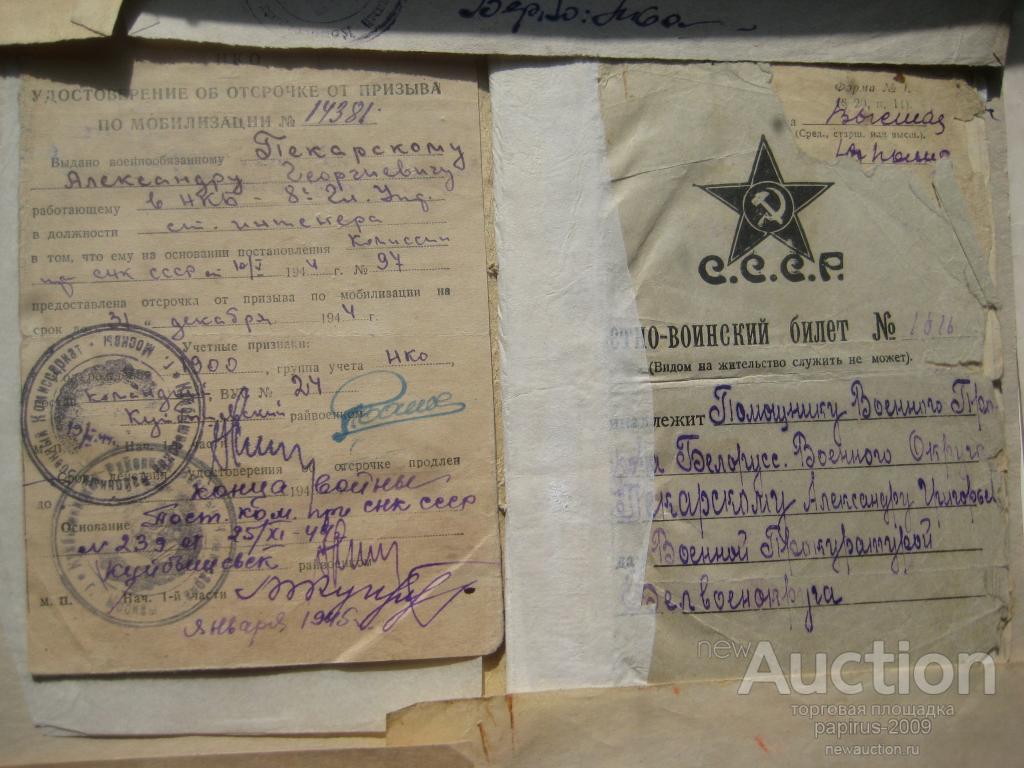 НКО
УДОСТОВЕРЕНИЕ ОБ ОТСРОЧКЕ ОТ ПРИЗЫВА
ПО МОБИЛИЗАЦИИ № 14381.
Выдано военнообязанному Пекарскому
Александру Георгиевичу
работающему в НКБ - 8е Гл. Упр.
в должности ст. инженера
в том, что ему на основании постановления Комиссии
при СНК СССР от 10/V 1944 г. № 97
предоставлена отсрочка от призыва по мобилизации на
срок до „31„ декабря 1944 г.
Учетные признаки:
1900, группа учета НКО,
ВУС № 24
райвоенком
М. П. Нач. 1-й части
удостоверения отсрочке продлен
до конца войны
Основание Пост. ком. при СНК СССР
№ 239 от 25/XI-44
Куйбышевск райвоенком
М. П. Нач. 1-й части
января 1945 г.
Форма № 1.
Высшая
(Сред., старш. или высш.).
С.С.С.Р.
етно-воинский билет №
(Видом на жительство служить не может).
надлежит Помощнику Военного Про
Белорусс. Военного Округ
карскому Александру Григорье
Военной Прокуратурой
Белвоенокруга
newAuction
торговая площадка
papirus-2009
newauction.ru